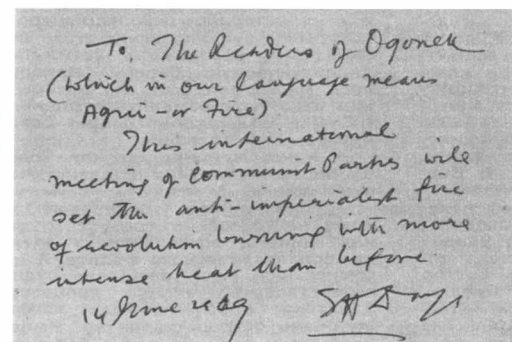 To, The Readers of Ogonek
(which in our language means
Agni - or Fire)
This international
meeting of Communist Parties will
set the anti-imperialist fire
of revolution burning with more
intense heat than before.
14 June 1969